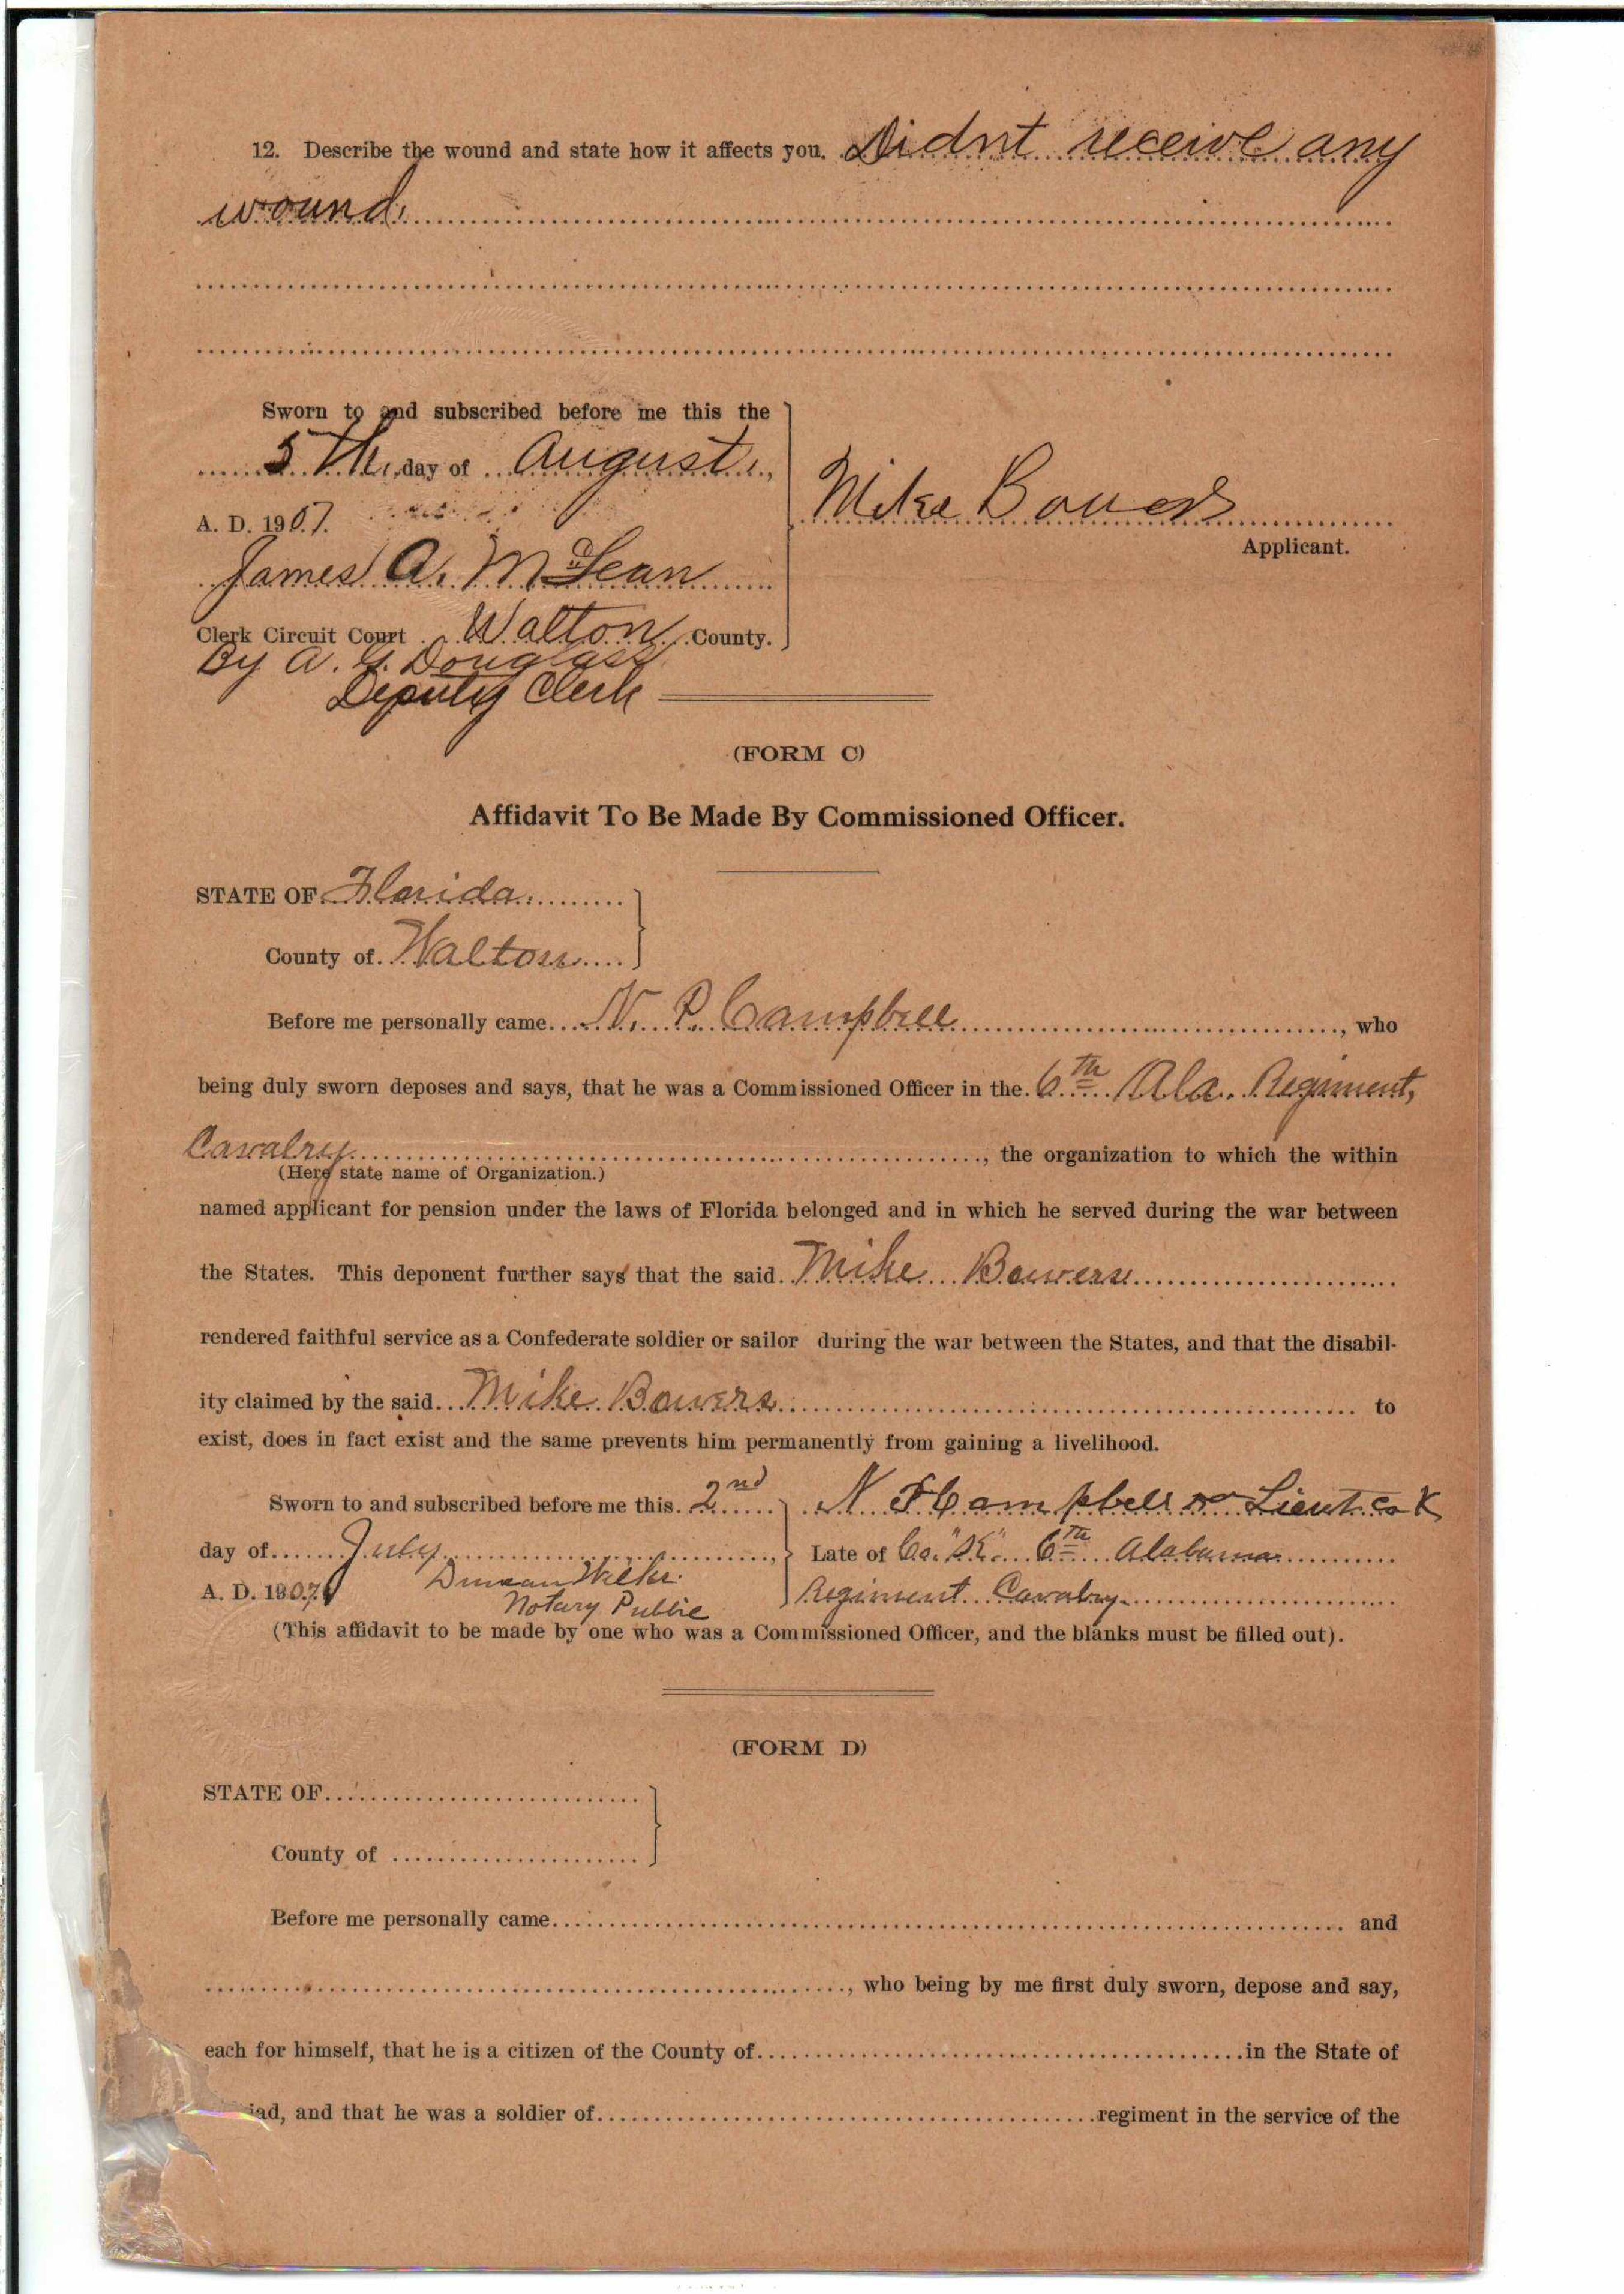 12. Describe the wound and state how it affects you. Didnt receive any
wound.
Sworn to and subscribed before me this the
5th day of August
A. D. 1907.
Mike Bowers
Applicant.
James A. McLean
Clerk Circuit Court Walton County.
By A. G. Douglass
Deputy Clerk
(FORM C)
Affidavit To Be Made By Commissioned Officer.
STATE OF Florida
County of Walton
Before me personally came N. P. Campbell, who
being duly sworn deposes and says, that he was a Commissioned Officer in the 6th Ala. Regiment,
Cavalry, the organization to which the within
(Here state name of Organization.)
named applicant for pension under the laws of Florida belonged and in which he served during the war between
the States. This deponent further says that the said Mike Bowers
rendered faithful service as a Confederate soldier or sailor during the war between the States, and that the disabil-
ity claimed by the said Mike Bowers to
exist, does in fact exist and the same prevents him permanently from gaining a livelihood.
Sworn to and subscribed before me this 2nd
day of July
A. D. 1907
Duncan
Notary Public
N Campbell Lieut. Co K
Late of Co. "K" 6th Alabama
Regiment Cavalry
(This affidavit to be made by one who was a Commissioned Officer, and the blanks must be filled out).
(FORM D)
STATE OF
County of
Before me personally came and
, who being by me first duly sworn, depose and say,
each for himself, that he is a citizen of the County of in the State of
, and that he was a soldier of regiment in the service of the